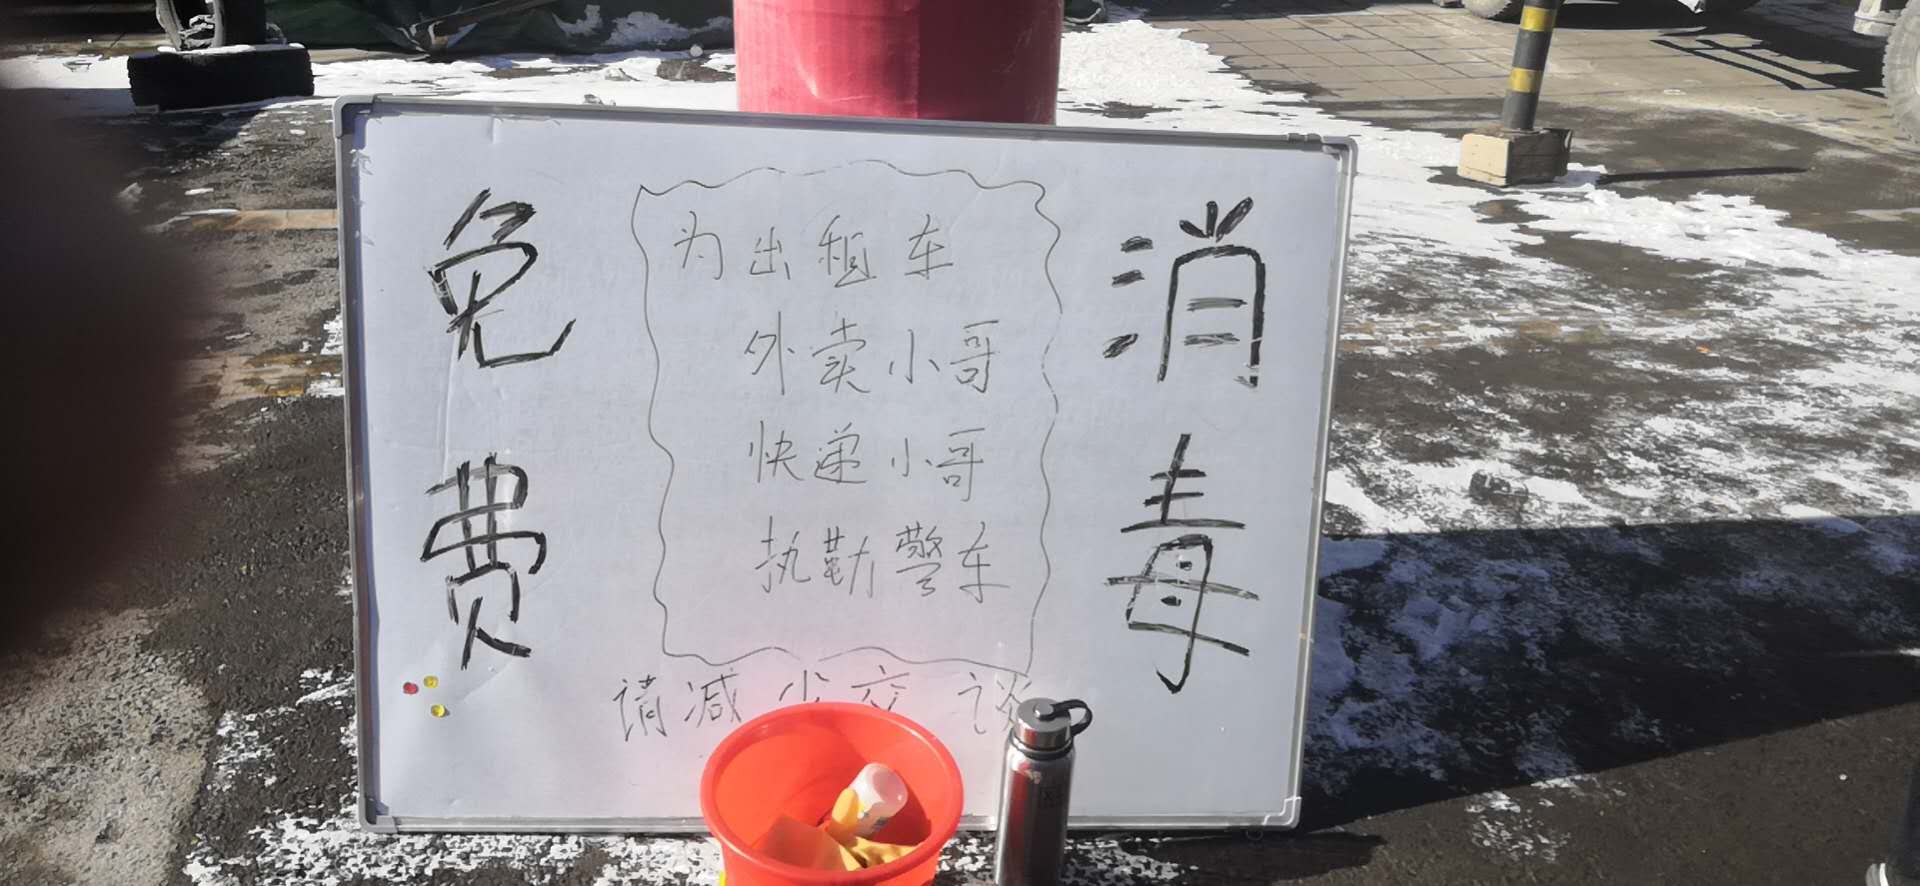 免费
为出租车
外卖小哥
快递小哥
执勤警车
消毒
请减少交谈